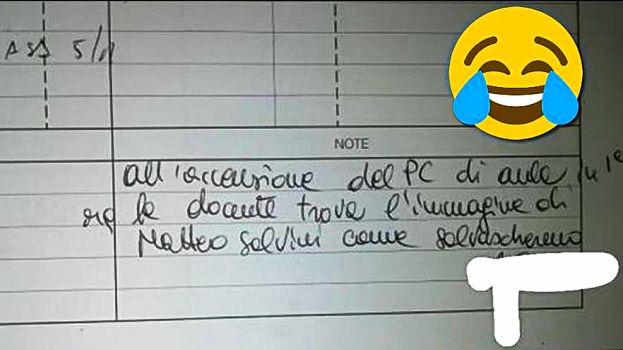 ASS 5/11
NOTE
all'accensione del PC di aula in 1ª
ora la docente trova l'immagine di
Matteo Salvini come salvaschermo